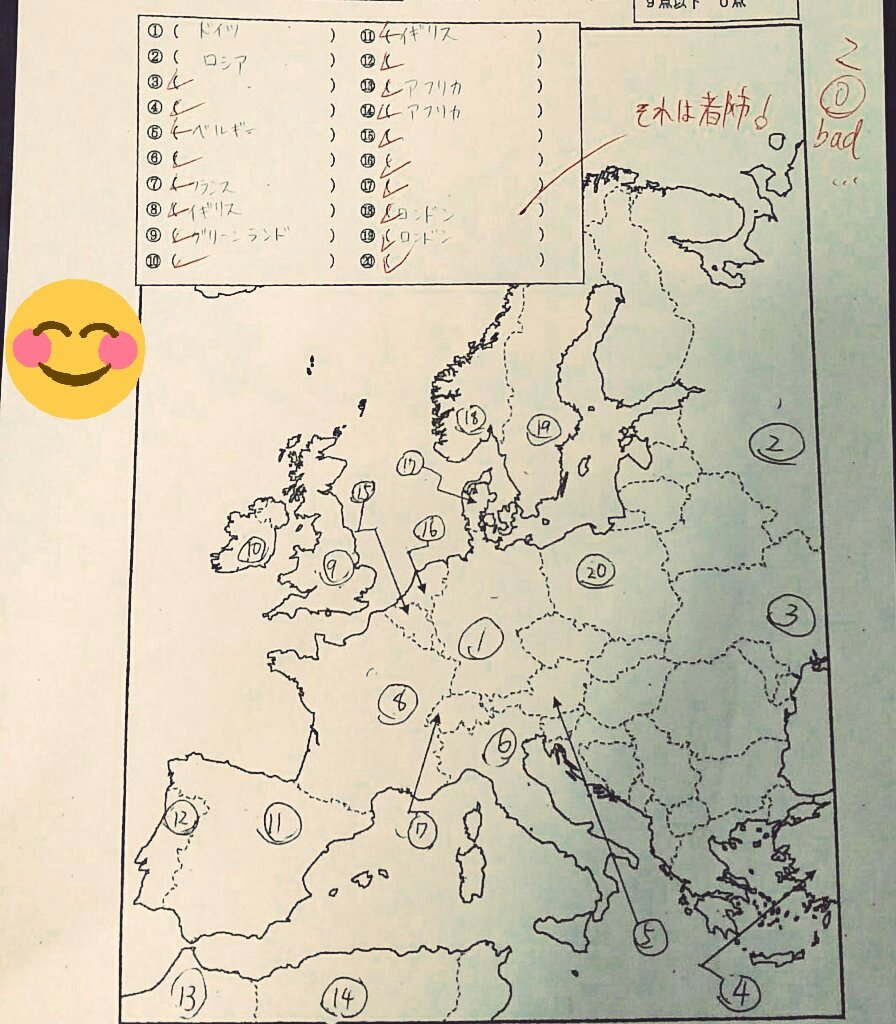 9点以下 0点
①( ドイツ )
②( ロシア )
③( )
④( )
⑤( ベルギー )
⑥( )
⑦( フランス )
⑧( イギリス )
⑨( グリーンランド )
⑩( )
⑪( イギリス )
⑫( )
⑬( アフリカ )
⑭( アフリカ )
⑮( )
⑯( )
⑰( )
⑱( ロンドン )
⑲( ロンドン )
⑳( )
それは都市!
2
⓪
bad
...
⑱
⑲
②
⑰
⑮
⑯
⑩
⑨
⑳
③
①
⑧
⑥
⑫
⑪
⑰
⑤
④
⑬
⑭